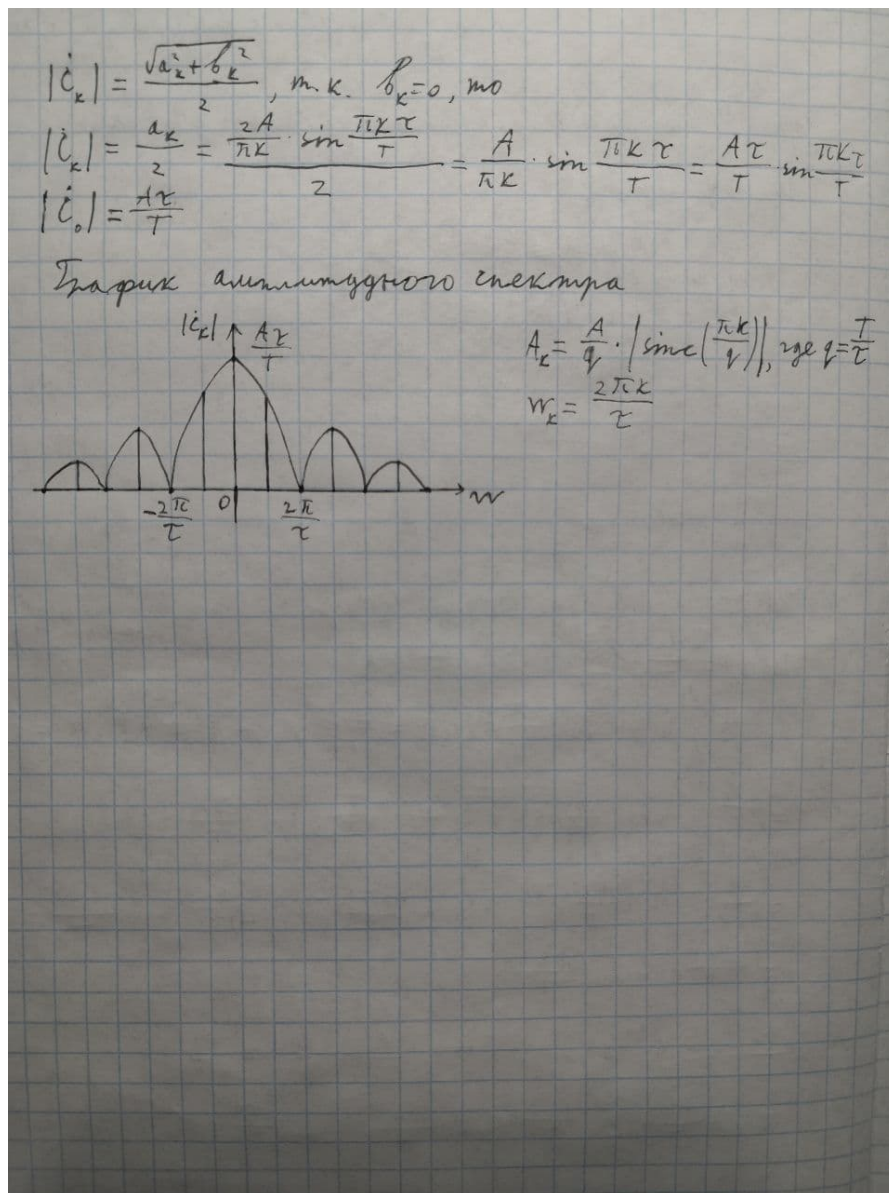 |Ċₖ| = √(aₖ² + bₖ²) / 2, т.к. bₖ=0, то
|Ċₖ| = aₖ/2 = (2A/πk · sin πkτ/T) / 2 = A/πk · sin πkτ/T = Aτ/T · sin πkτ/T
|Ċ₀| = Aτ/T
График амплитудного спектра
|ċₖ| Aτ/T
Aₖ = A/q · |sinc(πk/q)|, где q = T/τ
wₖ = 2πk/τ
-2π/τ 0 2π/τ w